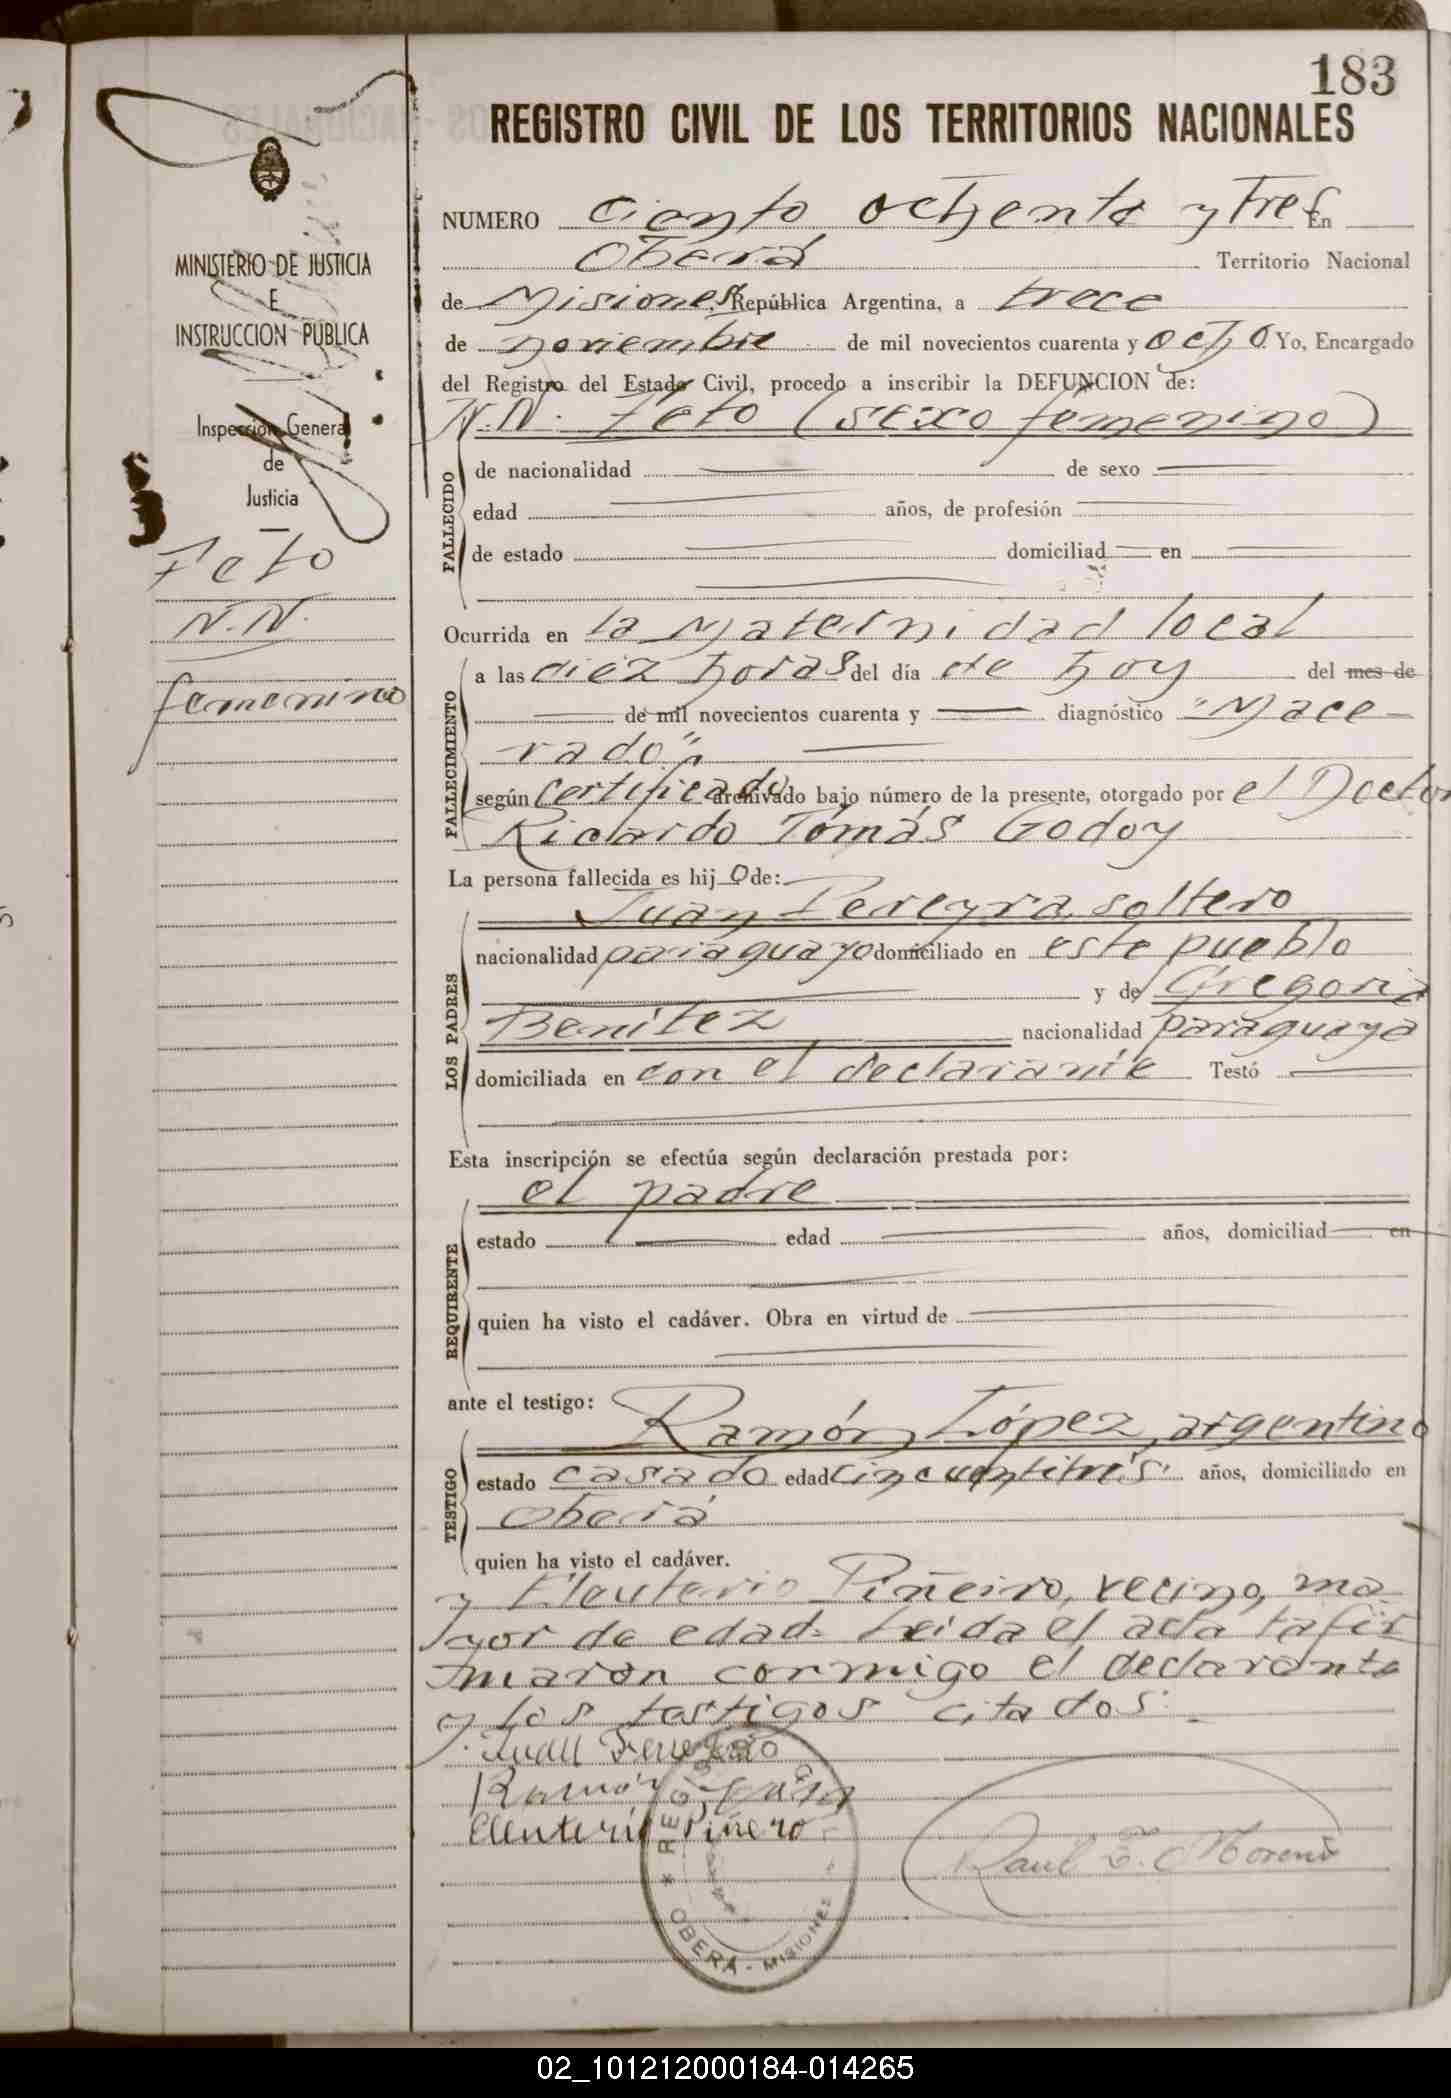 183
REGISTRO CIVIL DE LOS TERRITORIOS NACIONALES
MINISTERIO DE JUSTICIA
E
INSTRUCCION PUBLICA
Inspección General
de
Justicia
Feto
N.N.
femenino
NUMERO ciento ochenta y tres En
Oberá Territorio Nacional
de Misiones, República Argentina, a trece
de noviembre de mil novecientos cuarenta y ocho Yo, Encargado
del Registro del Estado Civil, procedo a inscribir la DEFUNCION de:
N.N. Feto (sexo femenino)
FALLECIDO
de nacionalidad de sexo
edad años, de profesión
de estado domiciliad en
Ocurrida en la Maternidad local
FALLECIMIENTO
a las diez horas del día de hoy del mes de
de mil novecientos cuarenta y diagnóstico "Mace-
rado"
según certificado archivado bajo número de la presente, otorgado por el Doctor
Ricardo Tomás Godoy
La persona fallecida es hij o de:
LOS PADRES
Juan Pereyra, soltero
nacionalidad paraguayo domiciliado en este pueblo
y de Gregoria
Benitez nacionalidad paraguaya
domiciliada en con el declarante Testó
Esta inscripción se efectúa según declaración prestada por:
REQUIRENTE
el padre
estado edad años, domiciliad en
quien ha visto el cadáver. Obra en virtud de
ante el testigo:
TESTIGO
Ramón López, argentino
estado casado edad cincuentitrés años, domiciliado en
Oberá
quien ha visto el cadáver.
y Eleuterio Piñeiro, vecino, ma-
yor de edad. Leida el acta la fir
maron conmigo el declarante
y los testigos citados.
Juan
Ramón
Eleuterio Piñero
Raul E. Moreno
REGISTRO
OBERÁ - MISIONES
02_101212000184-014265